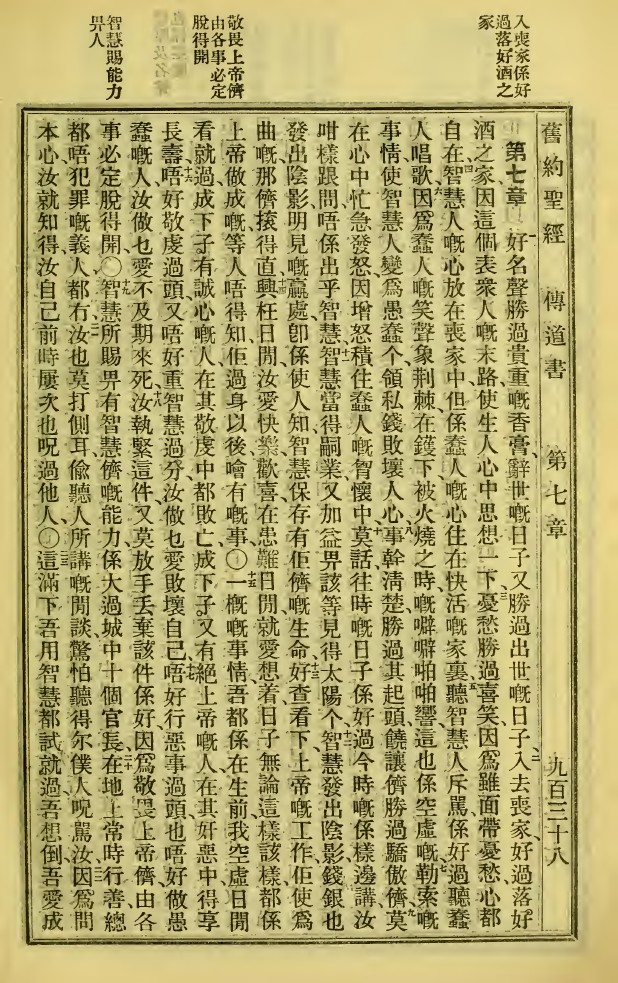 入喪家係好
過落好酒之
家
敬畏上帝儕
由各事必定
脫得開
智慧賜能力
畀人
舊約聖經 傳道書 第七章 九百三十八
第七章 好名聲勝過貴重嘅香膏、辭世嘅日子、又勝過出世嘅日子、二入去喪家好過落好
酒之家、因這個表衆人嘅末路、使生人心中思想一下、三憂愁勝過喜笑、因爲雖面帶憂愁、心都
自在、四智慧人嘅心放在喪家中、但係蠢人嘅心住在快活嘅家裏、五聽智慧人斥罵、係好過聽蠢
人唱歌、六因爲蠢人嘅笑聲、象荆棘在鑊下被火燒之時嘅噼噼啪啪響、這也係空虛嘅、七勒索嘅
事情、使智慧人變爲愚蠢个、領私錢敗壞人心、八事幹清楚、勝過其起頭、饒讓儕勝過驕傲儕、九莫
在心中忙急發怒、因增怒積住蠢人嘅胷懷中、十莫話往時嘅日子係好過今時嘅、係樣邊講、汝
咁樣跟問、唔係出乎智慧、十一智慧當得嗣業、又加益畀該等見得太陽个、十二智慧發出陰影、錢銀也
發出陰影、明見嘅贏處、卽係使人知智慧保存有佢儕嘅生命、十三好查看下上帝嘅工作、佢使爲
曲嘅、那儕㨢得直、十四興枉日間、汝愛快樂歡喜、在患難日間、就愛想着、日子無論這樣該樣、都係
上帝做成嘅、等人唔得知佢過身以後噲有嘅事、〇十五一概嘅事情、吾都係在生前我空虛日間
看就過、成下子有誠心嘅人、在其敬虔中都敗亡、成下子又有絕上帝嘅人、在其奸惡中得享
長壽、十六唔好敬虔過頭、又唔好重智慧過分、汝做乜愛敗壞自己、十七唔好行惡事過頭、也唔好做愚
蠢嘅人、汝做乜愛不及期來死、十八汝執緊這件、又莫放手丢棄該件係好、因爲敬畏上帝儕、由各
事必定脫得開、〇十九智慧所賜畀有智慧儕嘅能力、係大過城中十個官長、二十在地上常時行善、總
都唔犯罪嘅義人、都冇、二一汝也莫打側耳偸聽人所講嘅閒談、驚怕聽得尔僕人呪罵汝、二二因爲問
本心、汝就知得汝自己前時屢次也呪過他人、〇二三這滿下吾用智慧都試就過、吾想倒、吾愛成